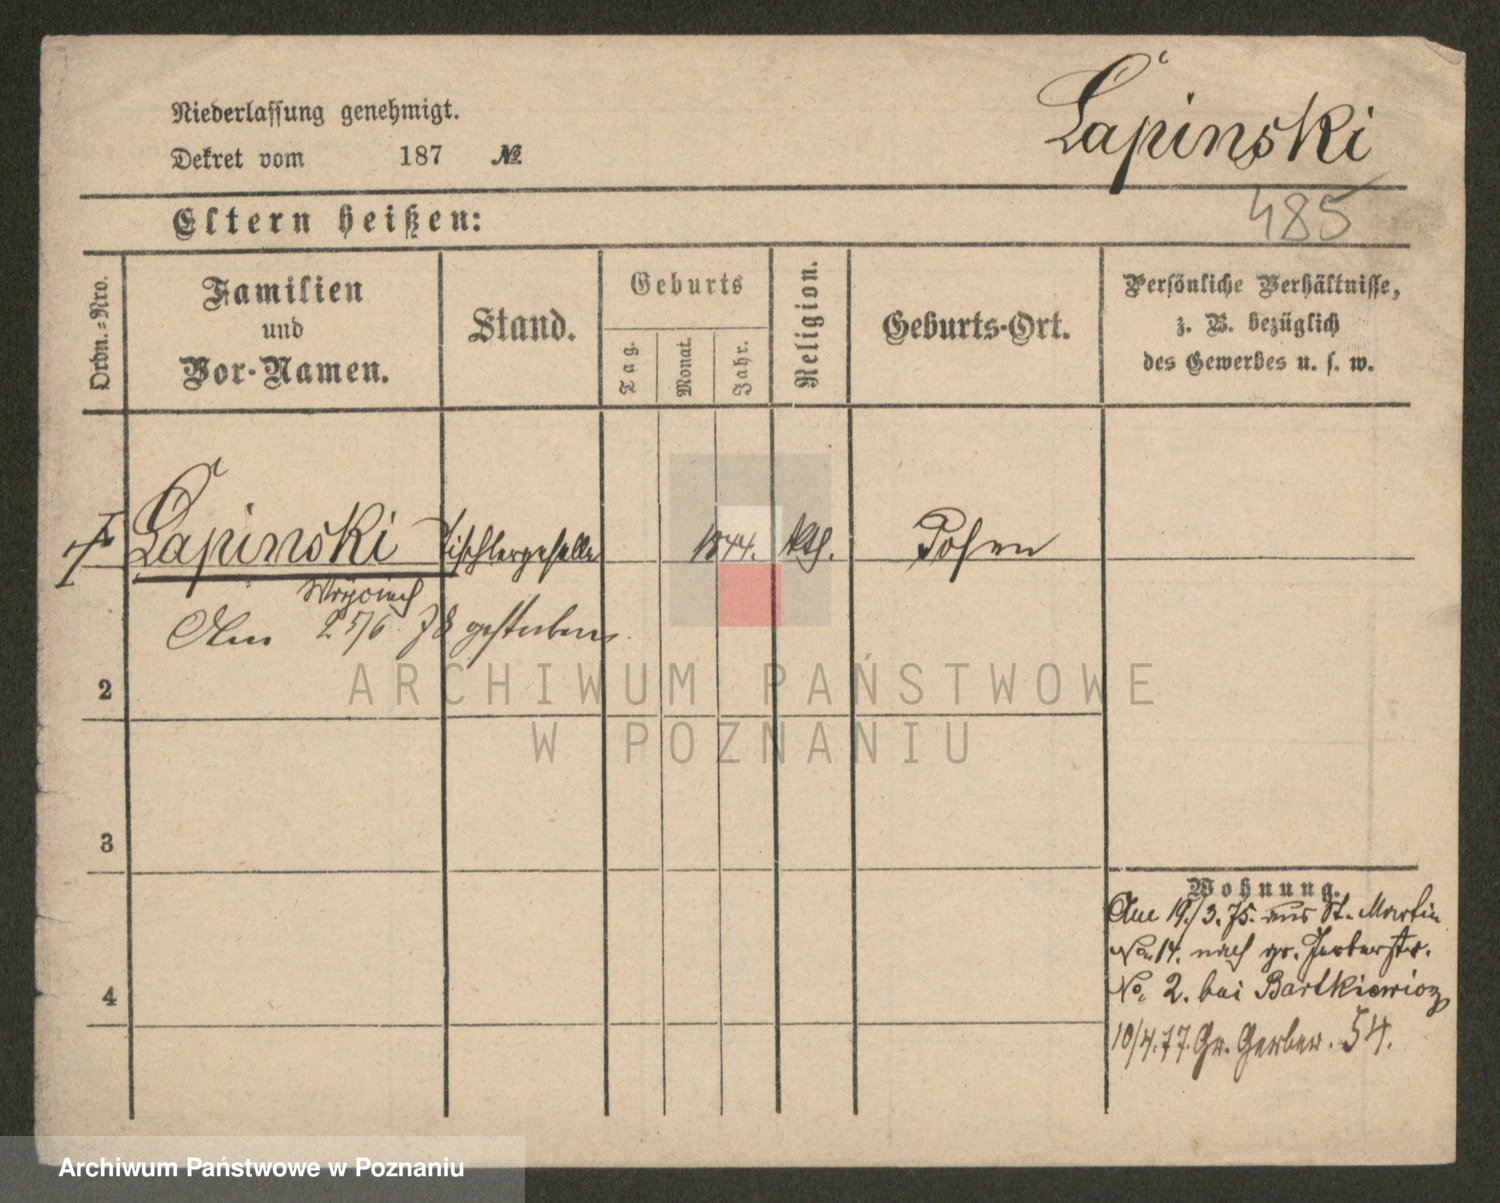 Niederlassung genehmigt.
Dekret vom 187 №
Lapinski
Eltern heißen:
485
Ordn.-Nro.
Familien
und
Vor-Namen.
Stand.
Geburts
Tag.
Monat.
Jahr.
Religion.
Geburts-Ort.
Persönliche Verhältnisse,
z. B. bezüglich
des Gewerbes u. s. w.
Lapinski Tischlergeselle 1844. kth. Posen
Woyciech
Am 25/6 78 gestorben.
2
3
4
Wohnung.
Am 19./3.75. aus St. Martin
No. 14. nach gr. Gerberstr.
No. 2. bei Bartkiewicz
10/4.77. Gr. Gerber. 54.
ARCHIWUM PAŃSTWOWE
W POZNANIU
Archiwum Państwowe w Poznaniu